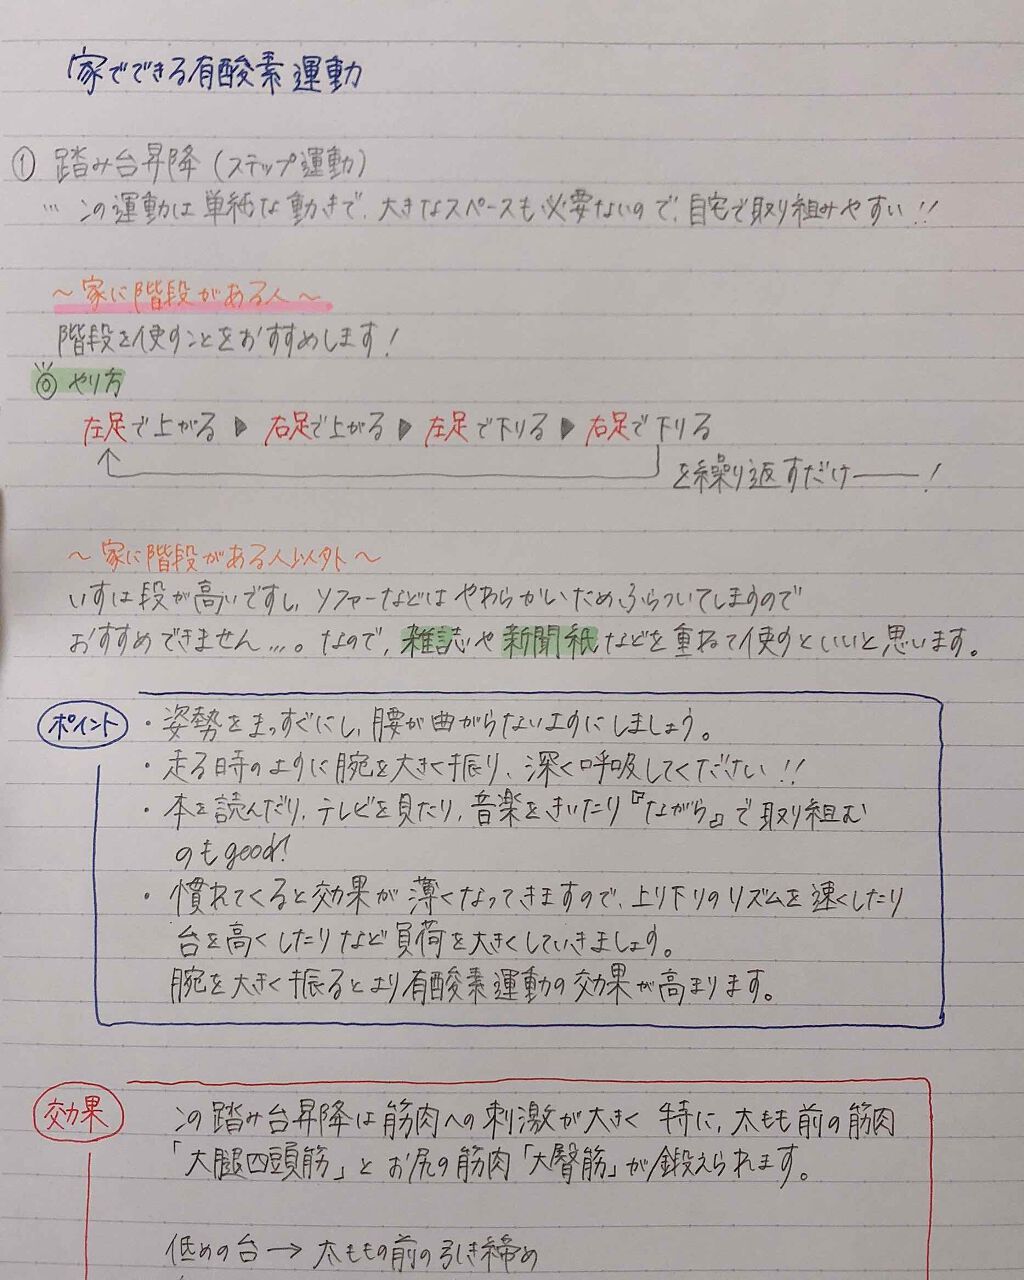 家でできる有酸素運動
① 踏み台昇降（ステップ運動）
… この運動は単純な動きで、大きなスペースも必要ないので、自宅で取り組みやすい!!
～家に階段がある人～
階段を使うことをおすすめします!
◎ やり方
左足で上がる ▶ 右足で上がる ▶ 左足で下りる ▶ 右足で下りる
を繰り返すだけ――!
～家に階段がある人以外～
いすは段が高いですし、ソファーなどはやわらかいためふらついてしますので
おすすめできません…。なので、雑誌や新聞紙などを重ねて使うといいと思います。
ポイント
・姿勢をまっすぐにし、腰が曲がらないようにしましょう。
・走る時のように腕を大きく振り、深く呼吸してください!!
・本を読んだり、テレビを見たり、音楽をきいたり『ながら』で取り組む
のもgood!
・慣れてくると効果が薄くなってきますので、上り下りのリズムを速くしたり
台を高くしたりなど負荷を大きくしていきましょう。
腕を大きく振るとより有酸素運動の効果が高まります。
効果
この踏み台昇降は筋肉への刺激が大きく 特に、太もも前の筋肉
「大腿四頭筋」とお尻の筋肉「大臀筋」が鍛えられます。
低めの台→太ももの前の引き締め